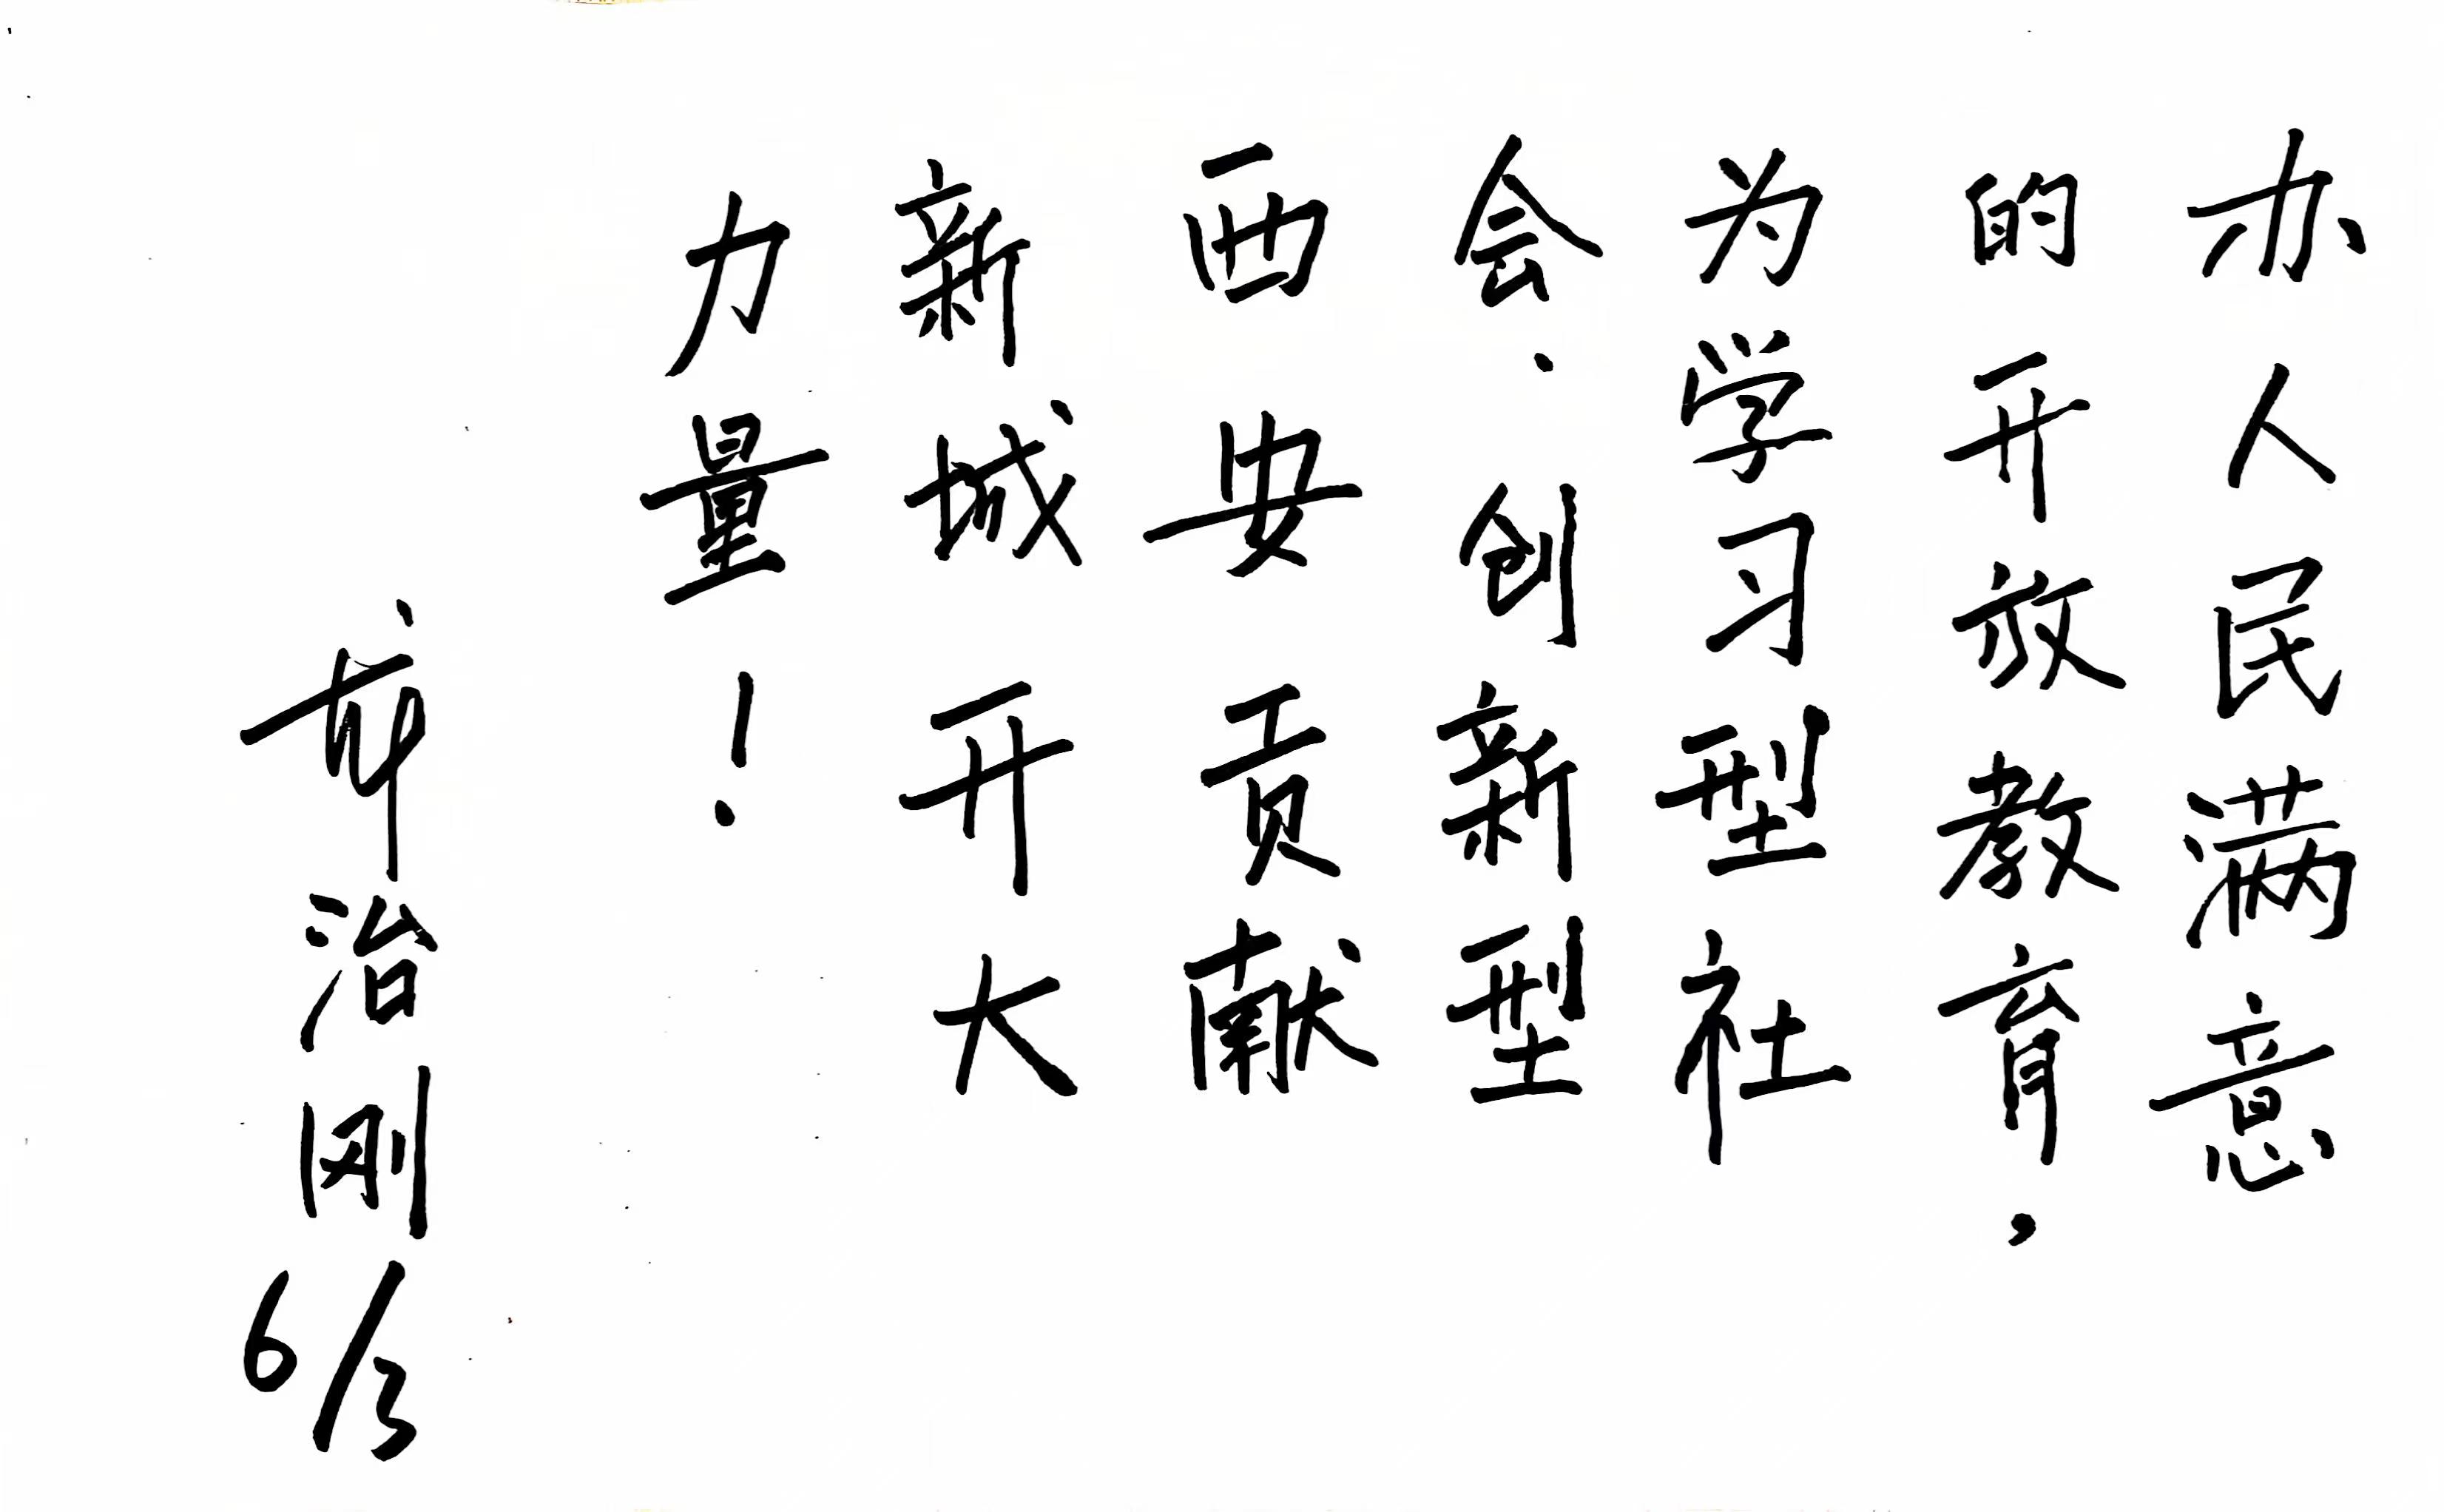 办人民满意
的开放教育，
为学习型社
会、创新型
西安贡献
新城开大
力量！
治刚 6/3